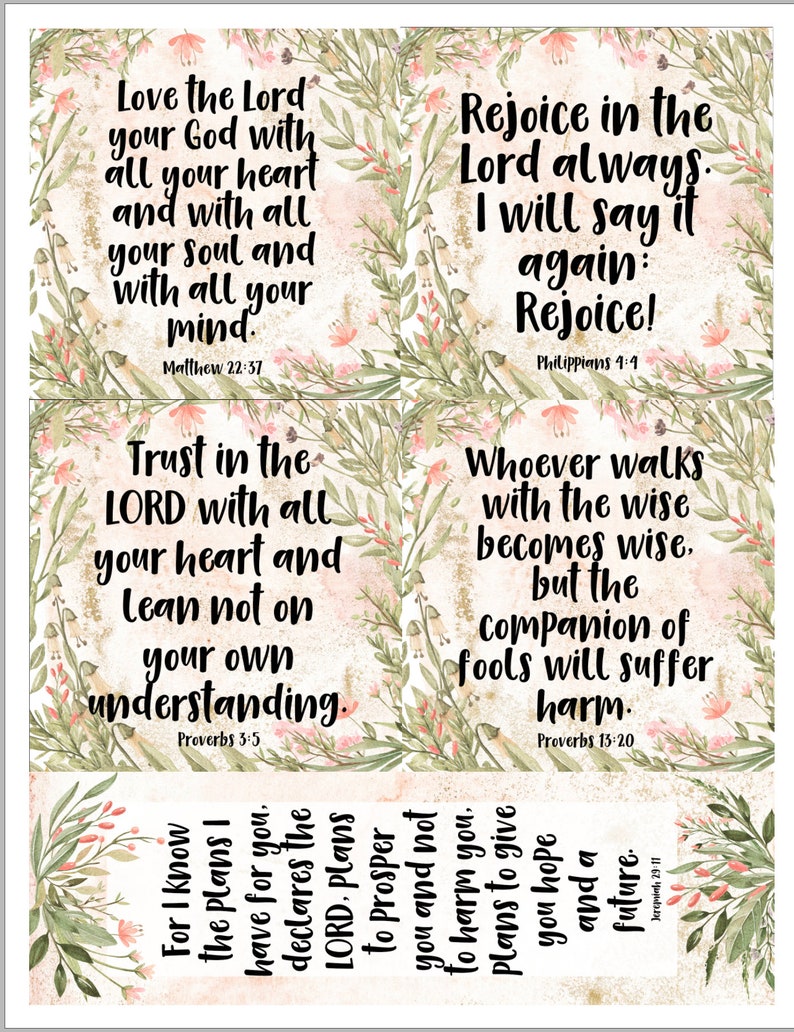 Love the Lord
your God with
all your heart
and with all
your soul and
with all your
mind.
Matthew 22:37
Rejoice in the
Lord always.
I will say it
again:
Rejoice!
Philippians 4:4
Trust in the
LORD with all
your heart and
lean not on
your own
understanding.
Proverbs 3:5
Whoever walks
with the wise
becomes wise,
but the
companion of
fools will suffer
harm.
Proverbs 13:20
For I know
the plans I
have for you,
declares the
LORD, plans
to prosper
you and not
to harm you,
plans to give
you hope
and a
future.
Jeremiah 29:11